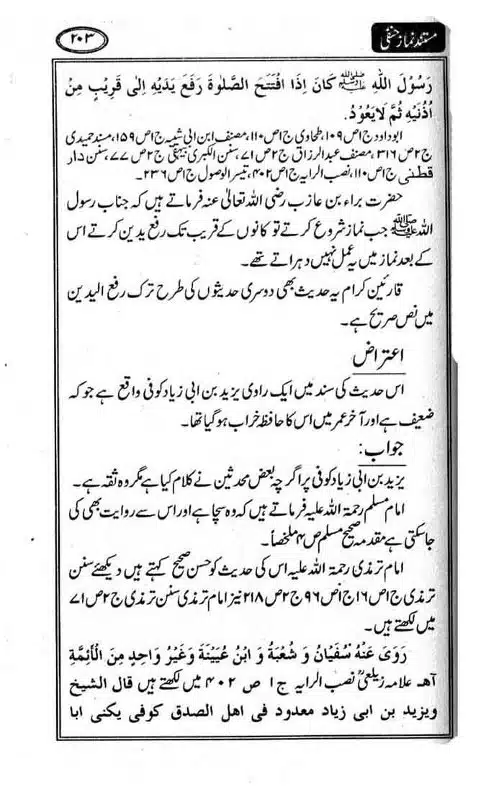 مستند نماز حنفی
۲۰۳
رَسُوْلَ اللّٰهِ ﷺ كَانَ اِذَا افْتَتَحَ الصَّلٰوةَ رَفَعَ يَدَيْهِ اِلٰى قَرِيْبٍ مِنْ
اُذُنَيْهِ ثُمَّ لَايَعُوْدُ.
ابوداود ج۱ص۱۰۹، طحاوی ج۱ص۱۱۰، مصنف ابن ابی شیبہ ج۱ص۱۵۹، مسند حمیدی
ج۲ص۳۱۶، مصنف عبدالرزاق ج۲ص۷۱، سنن الکبریٰ بیہقی ج۲ص۷۷، سنن دار
قطنی ج۱ص۱۱۰، نصب الرایہ ج۱ص۴۰۲، تیسر الوصول ج۱ص۲۳۶۔
حضرت براء بن عازب رضی اللہ تعالیٰ عنہ فرماتے ہیں کہ جناب رسول
اللہ ﷺ جب نماز شروع کرتے تو کانوں کے قریب تک رفع یدین کرتے اس
کے بعد نماز میں یہ عمل نہیں دہراتے تھے۔
قارئین کرام یہ حدیث بھی دوسری حدیثوں کی طرح ترک رفع الیدین
میں نص صریح ہے۔
اعتراض
اس حدیث کی سند میں ایک راوی یزید بن ابی زیاد کوفی واقع ہے جو کہ
ضعیف ہے اور آخر عمر میں اس کا حافظہ خراب ہو گیا تھا۔
جواب:
یزید بن ابی زیاد کوفی پر اگرچہ بعض محدثین نے کلام کیا ہے مگر وہ ثقہ ہے۔
امام مسلم رحمۃ اللہ علیہ فرماتے ہیں کہ وہ سچا ہے اور اس سے روایت بھی کی
جاسکتی ہے مقدمہ صحیح مسلم ص۴ ملخصاً۔
امام ترمذی رحمۃ اللہ علیہ اس کی حدیث کو حسن صحیح کہتے ہیں دیکھئے سنن
ترمذی ج۱ص۱۶ ج۱ص۹۶ ج۲ص۲۱۸ نیز امام ترمذی سنن ترمذی ج۲ص۷۱
میں لکھتے ہیں۔
رَوٰى عَنْهُ سُفْيَانُ وَ شُعْبَةُ وَ ابْنُ عُيَيْنَةَ وَغَيْرُ وَاحِدٍ مِنَ الْاَئِمَّةِ
آھـ علامہ زیلعیؒ نصب الرایہ ج۱ ص ۴۰۲ میں لکھتے ہیں قال الشيخ
ويزيد بن ابى زياد معدود فى اهل الصدق كوفى يكنى ابا